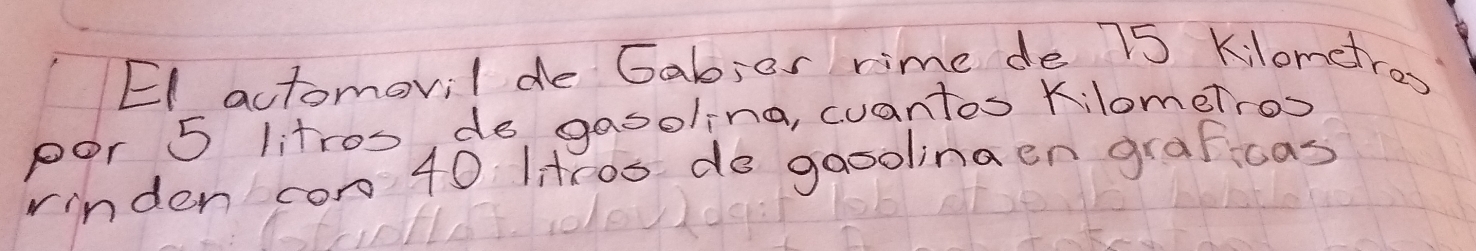 El actomovil de Gabier rime de 75 Kilometros
por 5 litros de gasolina, cuantos Kilometros
rinden con 40 litros de gasolina en graficas